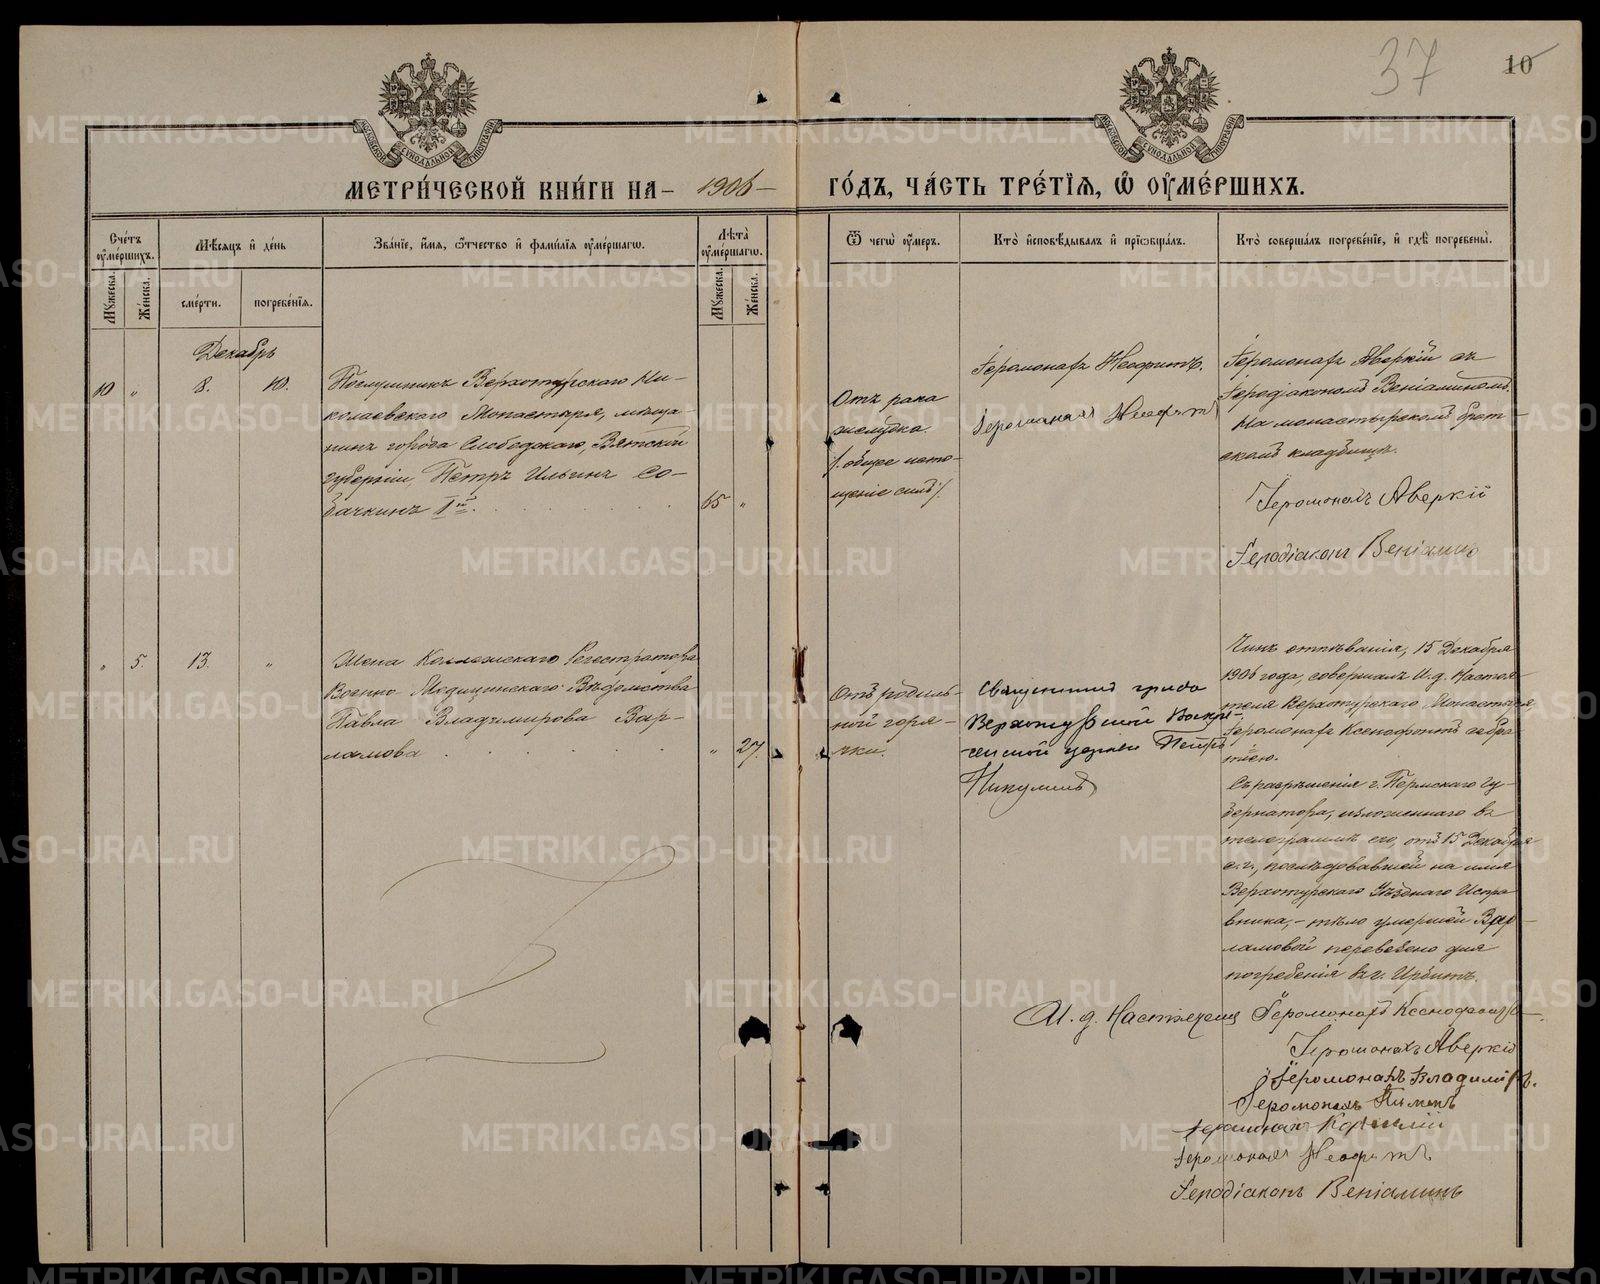 37
10
МЕТРИ́ЧЕСКОЙ КНИ́ГИ НА 1906 ГО́ДЪ, ЧА́СТЬ ТРЕ́ТІѦ, Ѡ҆ ОУ҆МЕ́РШИХЪ.
Сче́тъ оу҆ме́ршихъ.
Мꙋ́жеска.
Же́нска.
Мѣ́сяцъ и҆ де́нь
сме́рти.
погребе́нїѧ.
Зва́нїе, и҆́мѧ, ѻ҆́тчество и҆ фами́лїѧ оу҆ме́ршагѡ.
Лѣ́та оу҆ме́ршагѡ.
Мꙋ́жеска.
Же́нска.
Ѿ чегѡ̀ оу҆́меръ.
Кто̀ и҆сповѣ́дывалъ и҆ прїѡбща́лъ.
Кто̀ соверша́лъ погребе́нїе, и҆ гдѣ̀ погребены̀.
Декабрь
10 „ 8. 10.
Послушникъ Верхотурскаго Ни-
колаевскаго Монастыря, мѣща-
нинъ города Слободскаго, Вятской
губерніи, Петръ Ильинъ Со-
бачкинъ 1й
65 „
Отъ рака
желудка
/:общее исто-
щеніе силъ:/.
Іеромонахъ Неофитъ.
Іеромонахъ Неофитъ
Іеромонахъ Аверкій съ
Іеродіакономъ Веніаминомъ.
На монастырскомъ брат-
скомъ кладбищѣ.
Іеромонахъ Аверкій
Іеродіаконъ Веніаминъ
„ 5. 13. „
Жена Коллежскаго Регестратора
Военно Медицинскаго Вѣдомства
Павла Владимирова Вар-
ламова
„ 27.
Отъ родиль-
ной горя-
чки.
Священникъ градо
Верхотурской Воскре-
сенской церкви Петръ
Никулинъ
Чинъ отпѣванія, 15 Декабря
1906 года, совершалъ И. д. Настоя-
теля Верхотурскаго Монастыря,
Іеромонахъ Ксенофонтъ съ бра-
тіею.
Съ разрѣшенія г. Пермскаго Гу-
бернатора, изложеннаго въ
телеграммѣ его, отъ 15 Декабря
с. г., послѣдовавшей на имя
Верхотурскаго Уѣзднаго Испра-
вника, – тѣло умершей Вар-
ламовой перевезено для
погребенія въ г. Ирбитъ.
И. д. Настоятеля Іеромонахъ Ксенофонтъ
Іеромонахъ Аверкій
Іеромонахъ Владиміръ.
Іеромонахъ Пименъ
Іеромонахъ
Іеромонахъ Неофитъ
Іеродіаконъ Веніаминъ
METRIKI.GASO-URAL.RU